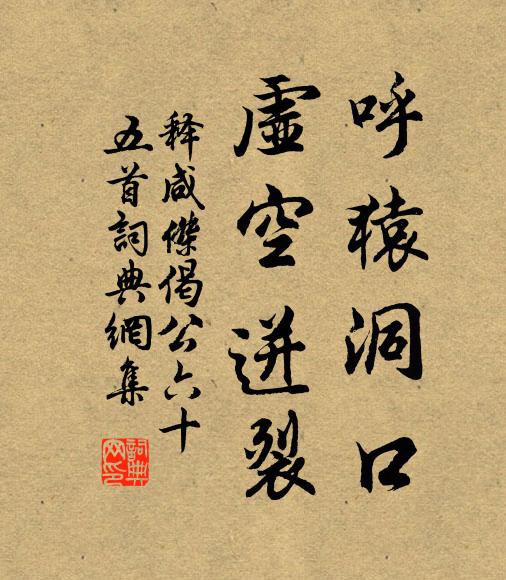 呼猿洞口
虚空迸裂
释咸傑偈公六十
五首詞典網集
詞典
网印